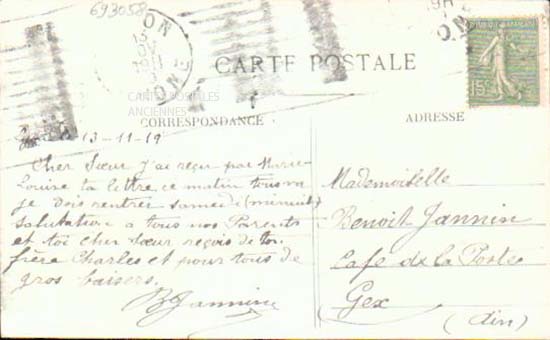 693058
CARTE POSTALE
CARTES POSTALES
ANCIENNES
CORRESPONDANCE
ADRESSE
15
13-11-19
Cher Sœur j'ai reçu par Marie
Louise ta lettre ce matin tous va
je dois rentrer samedi (minuit)
salutation a tous nos Parents
et toi cher Sœur reçois de ton
frère Charles et pour tous de
gros baisers.
Jannin
Mademoiselle
Benoit-Jannin
Cafe de la Poste
Gex
(Ain)